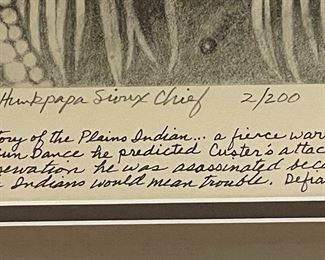 Hunkpapa Sioux Chief 2/200
tory of the Plains Indian... a fierce war
un Dance he predicted Custer's attac
servation he was assasinated beca
Indians would mean trouble. Defia